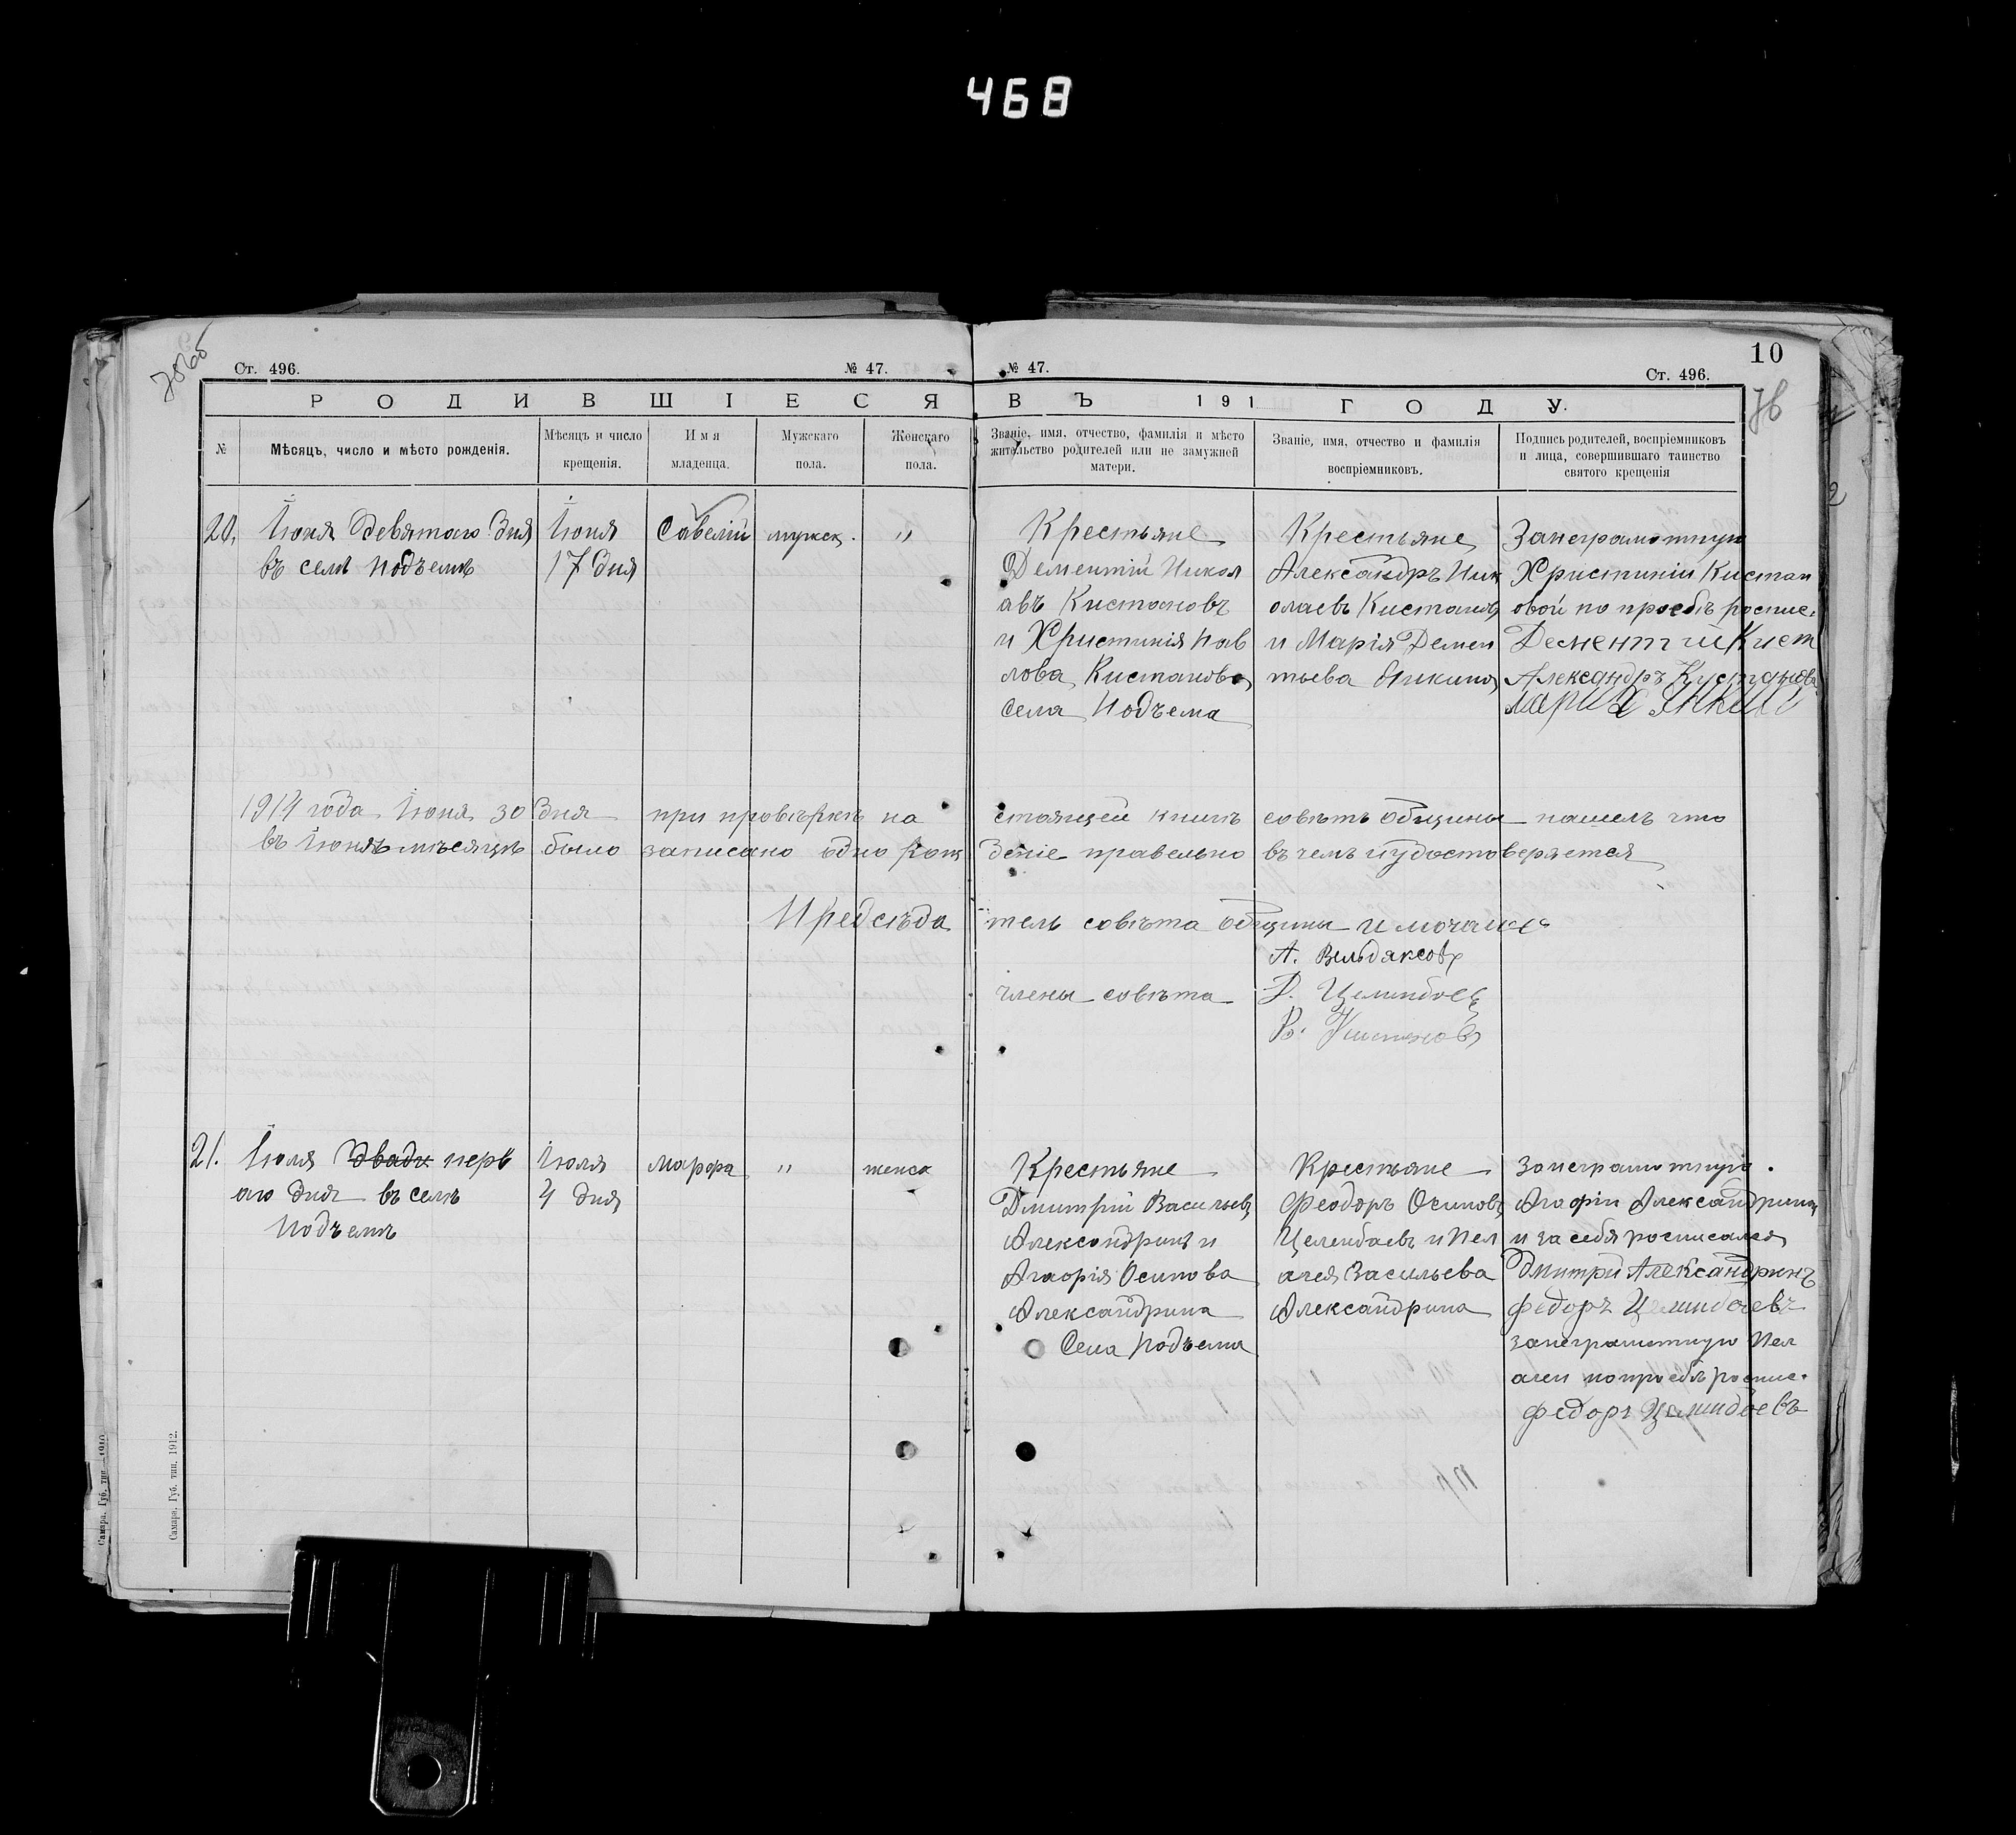 468
10
Ст. 496.
№ 47.
№ 47.
Ст. 496.
РОДИВШІЕСЯ
ВЪ 191 ГОДУ.
№
Мѣсяцъ, число и мѣсто рожденія.
Мѣсяцъ и число
крещенія.
Имя
младенца.
Мужскаго
пола.
Женскаго
пола.
Званіе, имя, отчество, фамилія и мѣсто
жительство родителей или не замужней
матери.
Званіе, имя, отчество и фамилія
воспріемниковъ.
Подпись родителей, воспріемниковъ
и лица, совершившаго таинство
святого крещенія
20.
Іюня девятаго дня
въ селѣ Подъемѣ
Іюня
17 дня
Савелій
мужск.
"
Крестьяне
Дементій Никол
авъ Кистановъ
и Христинія Пав
лова Кистанова
села Подъема
Крестьяне
Александръ Ник
олаевъ Кистановъ
и Марія Демен
тьева Яникина
Занеграмотную
Христинію Кистан
овой по просбѣ роспис.
Дементий Кист
Александръ Кустановъ
Мария
1914 года Іюня 30 дня при провѣркѣ на стоящей книгѣ совѣтъ общины нашелъ что
въ Іюнѣ мѣсяцѣ было записано одно рож деніе правельно въ чемъ и удостоверяется
Предсѣда тель совѣта общины
А. Вельдяксовъ
члены совѣта
В. Кистановъ
21.
Іюля двадц перв
аго дня въ селѣ
Подъемѣ
Іюля
4 дня
Марфа
"
женск
Крестьяне
Дмитрій Васильевъ
Александринъ и
Агафія Осипова
Александрина
Села Подъема
Крестьяне
Феодоръ Осиповъ
Целендаевъ и Пел
агея Васильева
Александрина
Занеграмотную
Агафію Александрину
и за себя росписался
Дмитрй Александринъ
Федоръ Целиндаевъ
занеграмотную Пел
агею попросбѣ роспис.
Федоръ Целиндаевъ
Самара. Губ. тип. 1912.